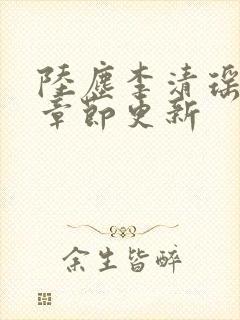 陸塵李清瑤
章節更新
余生皆醉